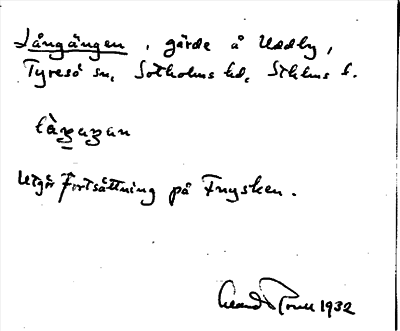 Långängen, gärde å Uddby,
Tyresö sn, Sotholms hd, Sthlms l.
Utgör fortsättning på Frysken.
1932